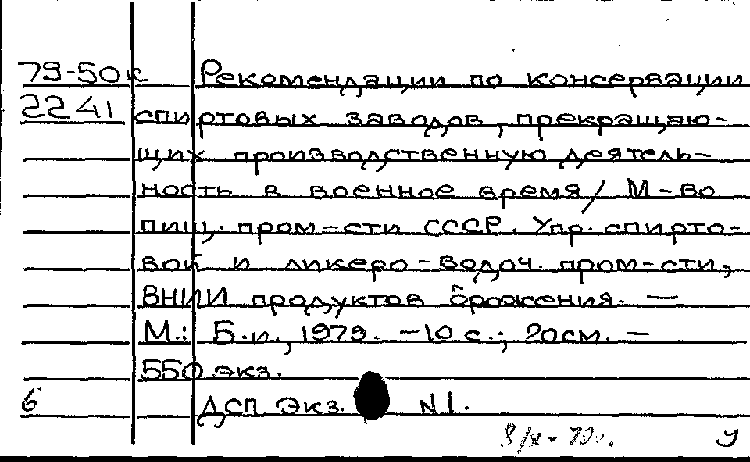 79-50к Рекомендации по консервации
2241 спиртовых заводов, прекращаю-
щих производственную деятель-
ность в военное время/ М-во
пищ. пром-сти СССР. Упр. спирто-
вой и ликеро-водоч. пром-сти,
ВНИИ продуктов брожения. —
М.: Б.и., 1979. -10 с.; 20см. —
550 экз.
6 ДСП Экз. N1.
у